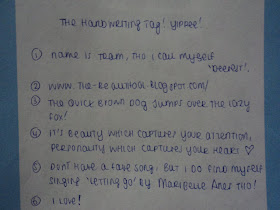 The Handwriting Tag! Yippee!
① Name is Toam, tho I call myself
'Deerest'.
② www.the-beautiholi.blogspot.com/
③ The quick brown dog jumps over the lazy
fox!
④ It's beauty which captures your attention,
personality which captures your heart ♡
⑤ Don't have a fave song, but I do find myself
singing 'Letting go' by Maribelle Anes tho!
⑥ I love!